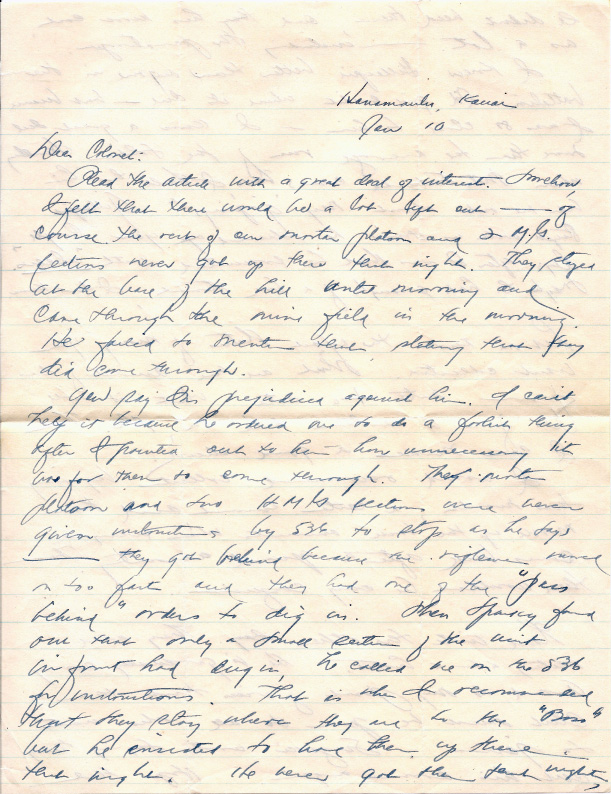 Hanamaulu, Kauai
Jan 10
Dear Colonel:
Read the article with a great deal of interest. Somehow
I felt that there would be a lot left out — of
course the rest of our mortar platoon and 2 M.G.
sections never got up there that night. They stayed
at the base of the hill until morning and
came through the mine field in the morning.
He failed to mention that, stating that they
did come through.
You say I'm prejudiced against him. I can't
help it because he ordered me to do a foolish thing
after I pointed out to him how unnecessary it
was for them to come through. The mortar
platoon and two H.M.G sections were never
given instructions by 536 to stop as he says
— they got behind because the riflemen moved
on too fast and they had one of the "pass
behind" orders to dig in. When Sparky found
out that only a small section of the unit
in front had dug in, he called me on the 536
for instructions. That is when I recommended
that they stay where they are to the "Boss"
but he insisted to have them up there
that night. He never got them that night,